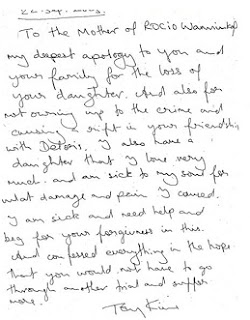 To the Mother of ROCIO Wanninkhof
my deepest apology to you and
your family for the loss of
your daughter. And also for
not owning up to the crime and
causing a rift in your friendship
with Dolores. I also have a
daughter that I love very
much. and am sick to my soul for
what damage and pain I caused.
I am sick and need help and
beg for your forgivness in this.
And confessed everything in the hope
that you would not have to go
through another trial and suffer
more.
Tony